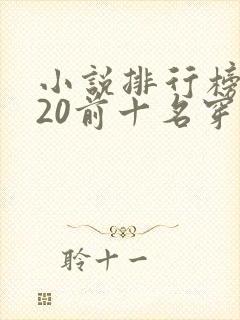 小説排行榜
20前十名穿
聆十一